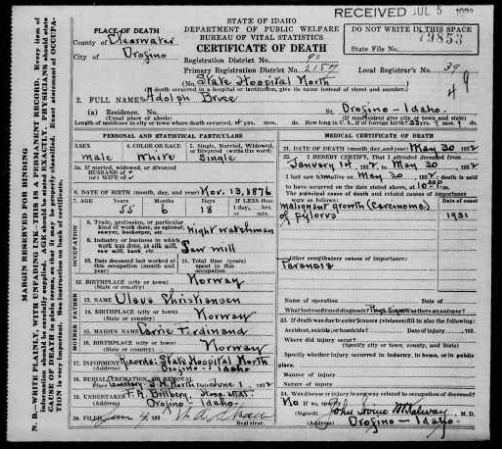 RECEIVED JUL 5
STATE OF IDAHO
DEPARTMENT OF PUBLIC WELFARE
BUREAU OF VITAL STATISTICS
CERTIFICATE OF DEATH
DO NOT WRITE IN THIS SPACE
State File No. 79853
PLACE OF DEATH
County of Clearwater
City of Orofino
Registration District No. 90
Primary Registration District No. 2157
Local Registrar's No. 39
(No. State Hospital North
(If death occurred in a hospital or institution, give its name instead of street and number.)
49
2. FULL NAME Adolph Brice
(a) Residence. No.
St. Orofino - Idaho.
(Usual place of abode)
(If nonresident give city or town and state)
Length of residence in city or town where death occurred
PERSONAL AND STATISTICAL PARTICULARS
MEDICAL CERTIFICATE OF DEATH
3. SEX
4. COLOR OR RACE
5. Single, Married, Widowed, or Divorced (write the word)
male White Single
5a. If married, widowed, or divorced
HUSBAND of
(or) WIFE of
6. DATE OF BIRTH (month, day, and year) Nov. 13, 1876
7. AGE Years Months Days If LESS than 1 day,
55 6 18
OCCUPATION
8. Trade, profession, or particular kind of work done, as spinner, sawyer, bookkeeper, etc. Night watchman
9. Industry or business in which work was done, as silk mill, saw mill, bank, etc. Saw mill
10. Date deceased last worked at this occupation (month and year)
11. Total time (years) spent in this occupation
12. BIRTHPLACE (city or town) Norway
(State or country)
FATHER
13. NAME Olavs Christiansen
14. BIRTHPLACE (city or town) Norway
(State or country)
MOTHER
15. MAIDEN NAME Ferdinand
16. BIRTHPLACE (city or town) Norway
(State or country)
17. INFORMANT Records: State Hospital North
(Address) Orofino - Idaho
18. BURIAL, CREMATION, OR REMOVAL
Place S.H. North Date June 1
19. UNDERTAKER Hospital
(Address) Orofino - Idaho.
20. FILED
Registrar.
21. DATE OF DEATH (month, day, and year) May 30
22. I HEREBY CERTIFY, That I attended deceased from
January 14 to May 30
I last saw him alive on May 30 death is said
to have occurred on the date stated above, at
The principal cause of death and related causes of importance
were as follows:
Malignant growth (Carcenoma) 1931
of pylorus
Other contributory causes of importance:
Paranoia
Name of operation Date of
What test confirmed diagnosis? Was there an autopsy?
23. If death was due to external causes (violence) fill in also the following:
Accident, suicide, or homicide? Date of injury
Where did injury occur?
(Specify city or town, county, and State)
Specify whether injury occurred in industry, in home, or in public place.
Manner of injury
Nature of injury
24. Was disease or injury in any way related to occupation of deceased?
No
(Signed) John M.D.
(Address) Orofino - Idaho.
MARGIN RESERVED FOR BINDING
N. B.—WRITE PLAINLY, WITH UNFADING INK—THIS IS A PERMANENT RECORD. Every item of
information should be carefully supplied. AGE should be stated EXACTLY. PHYSICIANS should state
CAUSE OF DEATH in plain terms, so that it may be properly classified. Exact statement of OCCUPA-
TION is very important. See instruction on back of certificate.